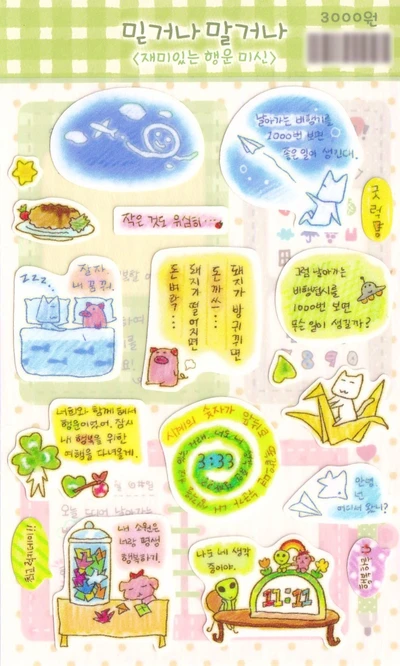 3000원
믿거나 말거나
<재미있는 행운 미신>
날아가는 비행기를
1000번 보면
좋은 일이 생긴대.
굿 럭 🍀
작은 것도 유심히...
zzz..
잘자
내 꿈 꿔.
돼지가 방귀뀌면
돈까쓰...
돼지가 떨어지면
돈벼락...
그럼 날아가는
비행접시를
1000번 보면
무슨 일이 생길까?
너희와 함께 해서
행운이었어. 잠시
내 행복을 위한
여행을 다녀올게.
시계의 숫자가
3:33
안녕
넌
어디서 왔니?
네 소원은
너랑 평생
행복하기.
나도 네 생각
중이야.
11:11